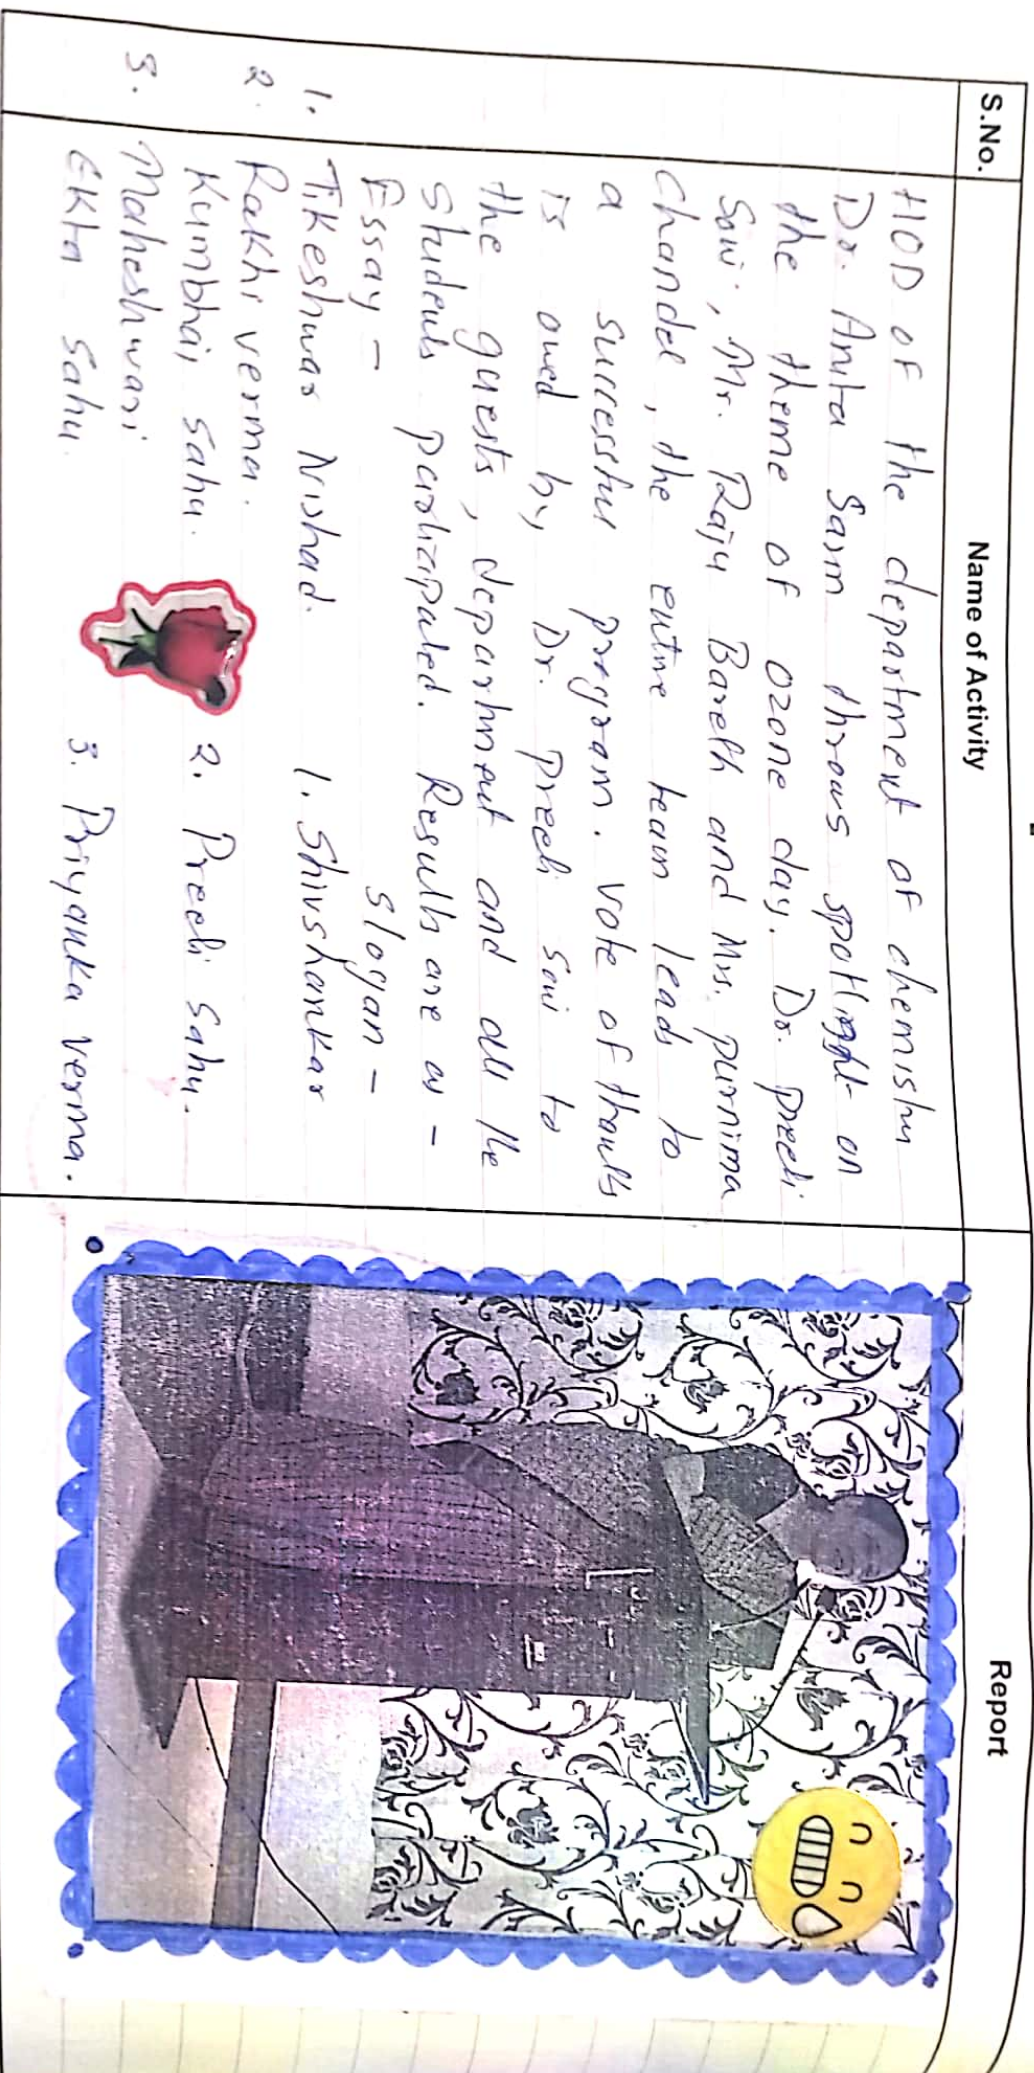 S.No. Name of Activity Report
HOD of the department of chemistry
Dr. Anita Sasm throws spotlight on
the theme of ozone day. Dr. Preeti
Soni, Mr. Raju Bareth and Mrs. purnima
Chandel, the entire team leads to
a successful program. Vote of thanks
is owed by Dr. Preeti soni to
the guests, department and all the
students participated. Results are as -
Essay - slogan -
1. Tikeshwar Nishad. 1. Shivshankar
2. Rakhi verma.
Kumbhai sahu. 2. Preeti sahu.
3. Maheshwari
Ekta sahu. 3. Priyanka verma.